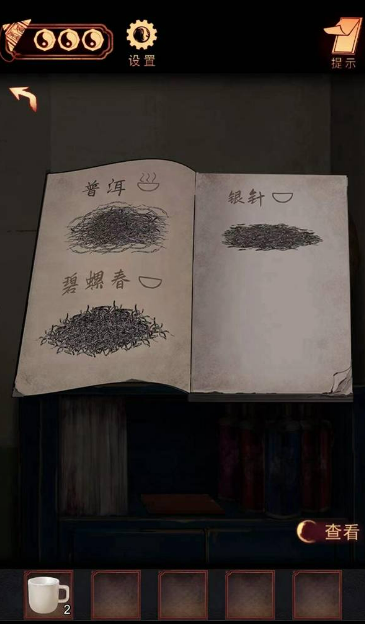 设置
提示
普洱
碧螺春
银针
查看
2